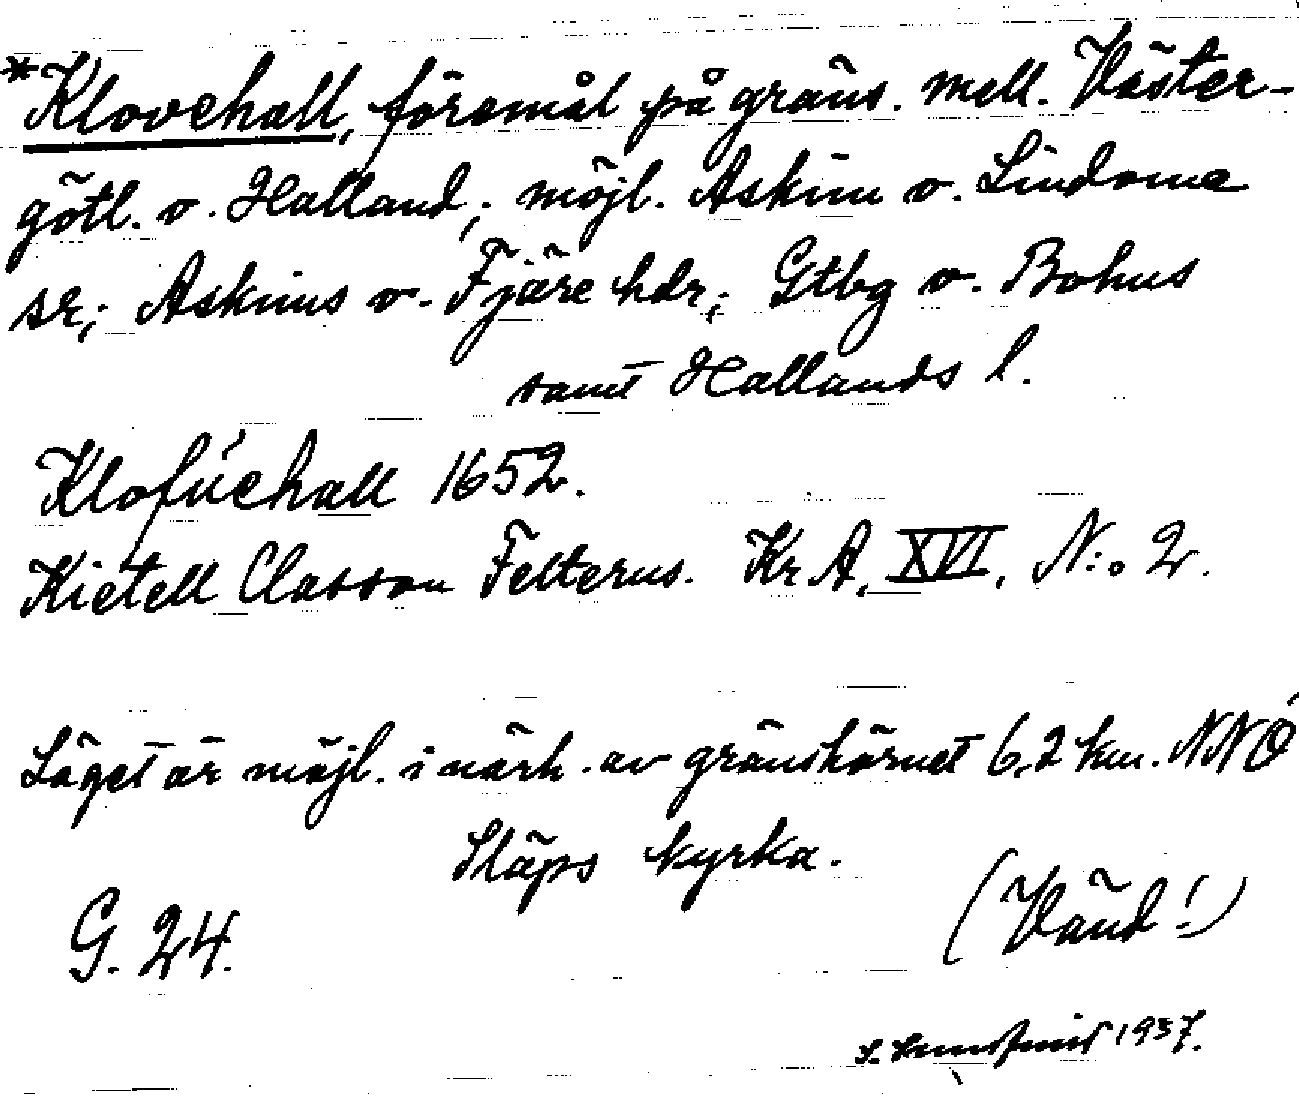 *Klovehall, föremål på gräns. mell. Väster-
götl. o. Halland; möjl. Askim o. Lindome
sr; Askims o. Fjäre hdr; Gtbg o. Bohus
samt Hallands l.
Klofúehall 1652.
Kietell Classon Felterus. Kr A, XVI, N:o 2.
Läget är möjl. i närh. av gränshörnet 6,2 km. NNÖ
Släps kyrka.
(Vänd!)
G. 24.
1937.